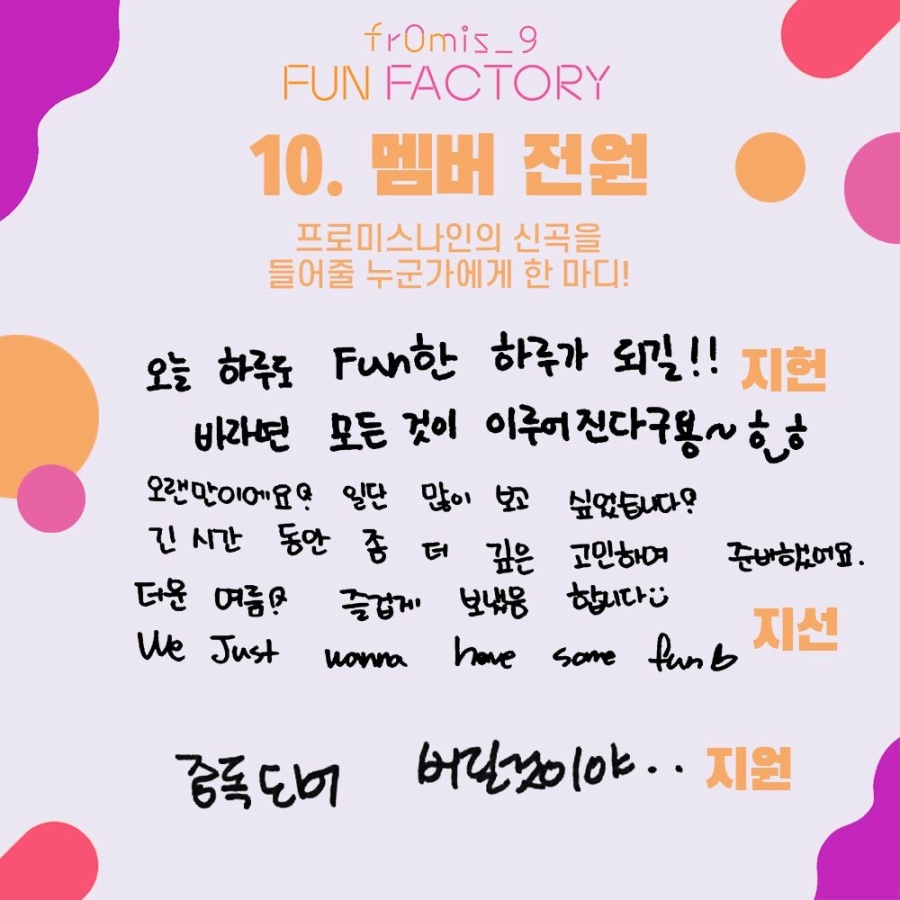 fr0mis_9
FUN FACTORY
10. 멤버 전원
프로미스나인의 신곡을
들어줄 누군가에게 한 마디!
오늘 하루도 Fun한 하루가 되길!! 지헌
바라면 모든 것이 이루어진다구용~ ㅎ_ㅎ
오랜만이에요? 일단 많이 보고 싶었습니다?
긴 시간 동안 좀 더 깊은 고민하며 준비했어요.
더운 여름? 즐겁게 보냈음 합니다
We Just wanna have some fun 지선
중독되어 버릴것이야.. 지원